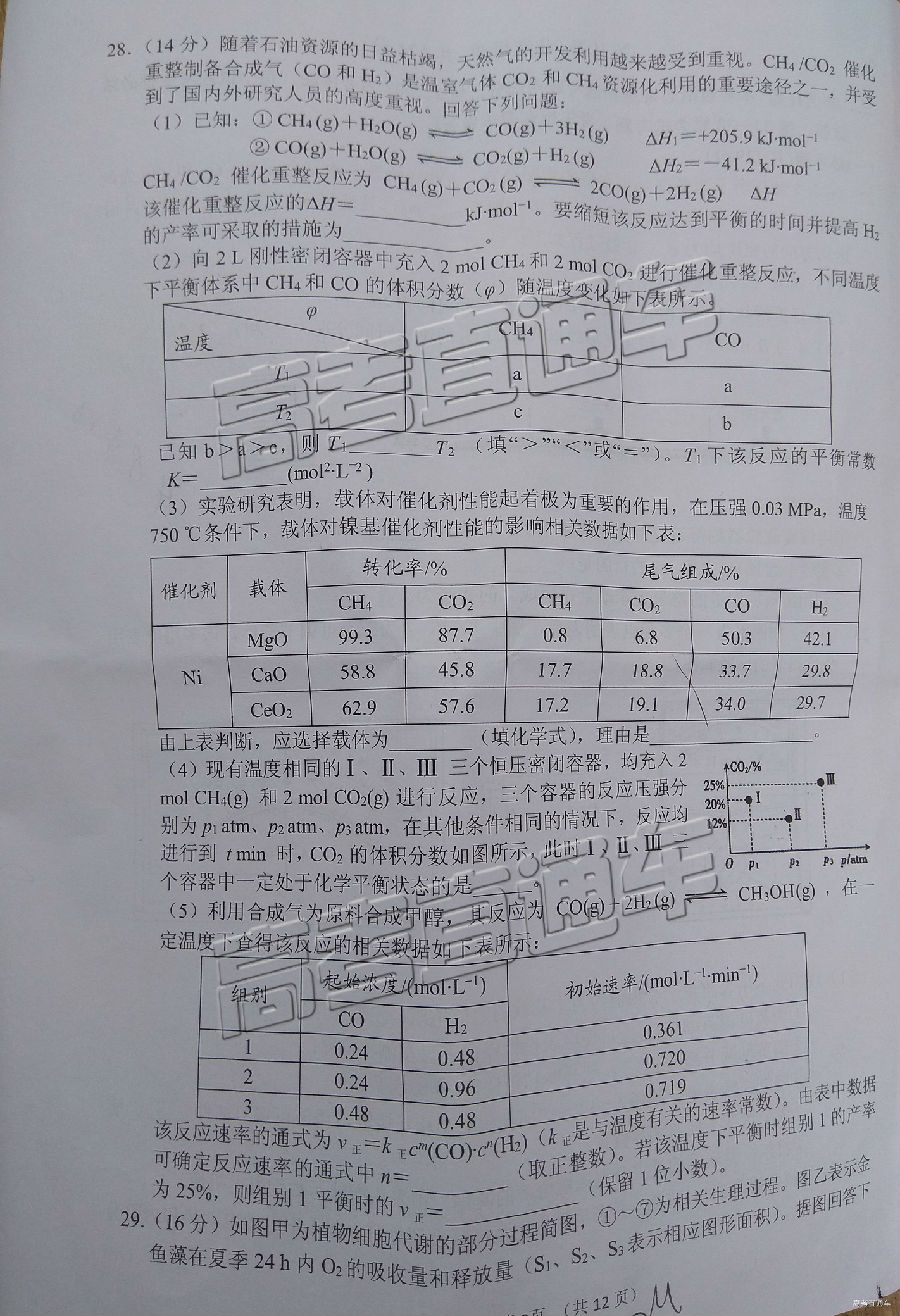 28.（14分）随着石油资源的日益枯竭，天然气的开发利用越来越受到重视。CH₄/CO₂ 催化
重整制备合成气（CO 和 H₂）是温室气体 CO₂ 和 CH₄ 资源化利用的重要途径之一，并受
到了国内外研究人员的高度重视。回答下列问题：
（1）已知：① CH₄(g)＋H₂O(g) ⇌ CO(g)+3H₂(g) ΔH₁=+205.9 kJ·mol⁻¹
② CO(g)＋H₂O(g) ⇌ CO₂(g)+H₂(g) ΔH₂=－41.2 kJ·mol⁻¹
CH₄/CO₂ 催化重整反应为 CH₄(g)+CO₂(g) ⇌ 2CO(g)+2H₂(g) ΔH
该催化重整反应的ΔH=________kJ·mol⁻¹。要缩短该反应达到平衡的时间并提高H₂
的产率可采取的措施为________。
（2）向 2 L 刚性密闭容器中充入 2 mol CH₄ 和 2 mol CO₂ 进行催化重整反应，不同温度
下平衡体系中 CH₄ 和 CO 的体积分数（φ）随温度变化如下表所示。
φ
温度 CH₄ CO
T₁ a a
T₂ c b
已知 b＞a＞c，则 T₁________T₂ （填“＞”“＜”或“＝”）。T₁ 下该反应的平衡常数
K=________(mol²·L⁻²)
（3）实验研究表明，载体对催化剂性能起着极为重要的作用，在压强 0.03 MPa，温度
750 ℃条件下，载体对镍基催化剂性能的影响相关数据如下表：
催化剂 载体 转化率/% 尾气组成/%
CH₄ CO₂ CH₄ CO₂ CO H₂
MgO 99.3 87.7 0.8 6.8 50.3 42.1
Ni CaO 58.8 45.8 17.7 18.8 33.7 29.8
CeO₂ 62.9 57.6 17.2 19.1 34.0 29.7
由上表判断，应选择载体为________（填化学式），理由是________。
（4）现有温度相同的Ⅰ、Ⅱ、Ⅲ 三个恒压密闭容器，均充入 2
mol CH₄(g) 和 2 mol CO₂(g) 进行反应，三个容器的反应压强分
别为 p₁ atm、p₂ atm、p₃ atm，在其他条件相同的情况下，反应均
进行到 t min 时，CO₂ 的体积分数如图所示，此时Ⅰ、Ⅱ、Ⅲ 三
个容器中一定处于化学平衡状态的是________。
CO₂/%
25% Ⅲ
20% Ⅰ
12% Ⅱ
O p₁ p₂ p₃ p/atm
（5）利用合成气为原料合成甲醇，其反应为 CO(g)+2H₂(g) ⇌ CH₃OH(g)，在一
定温度下查得该反应的相关数据如下表所示：
组别 起始浓度/(mol·L⁻¹) 初始速率/(mol·L⁻¹·min⁻¹)
CO H₂
1 0.24 0.48 0.361
2 0.24 0.96 0.720
3 0.48 0.48 0.719
该反应速率的通式为 v正=k正cᵐ(CO)·cⁿ(H₂)（k正是与温度有关的速率常数）。由表中数据
可确定反应速率的通式中 n=________（取正整数）。若该温度下平衡时组别 1 的产率
为 25%，则组别 1 平衡时的 v正=________（保留 1 位小数）。
29.（16分）如图甲为植物细胞代谢的部分过程简图，①～⑦为相关生理过程。图乙表示金
鱼藻在夏季 24 h 内 O₂ 的吸收量和释放量（S₁、S₂、S₃ 表示相应图形面积）。据图回答下
页 （共 12 页）
高考直通车
高考直通车